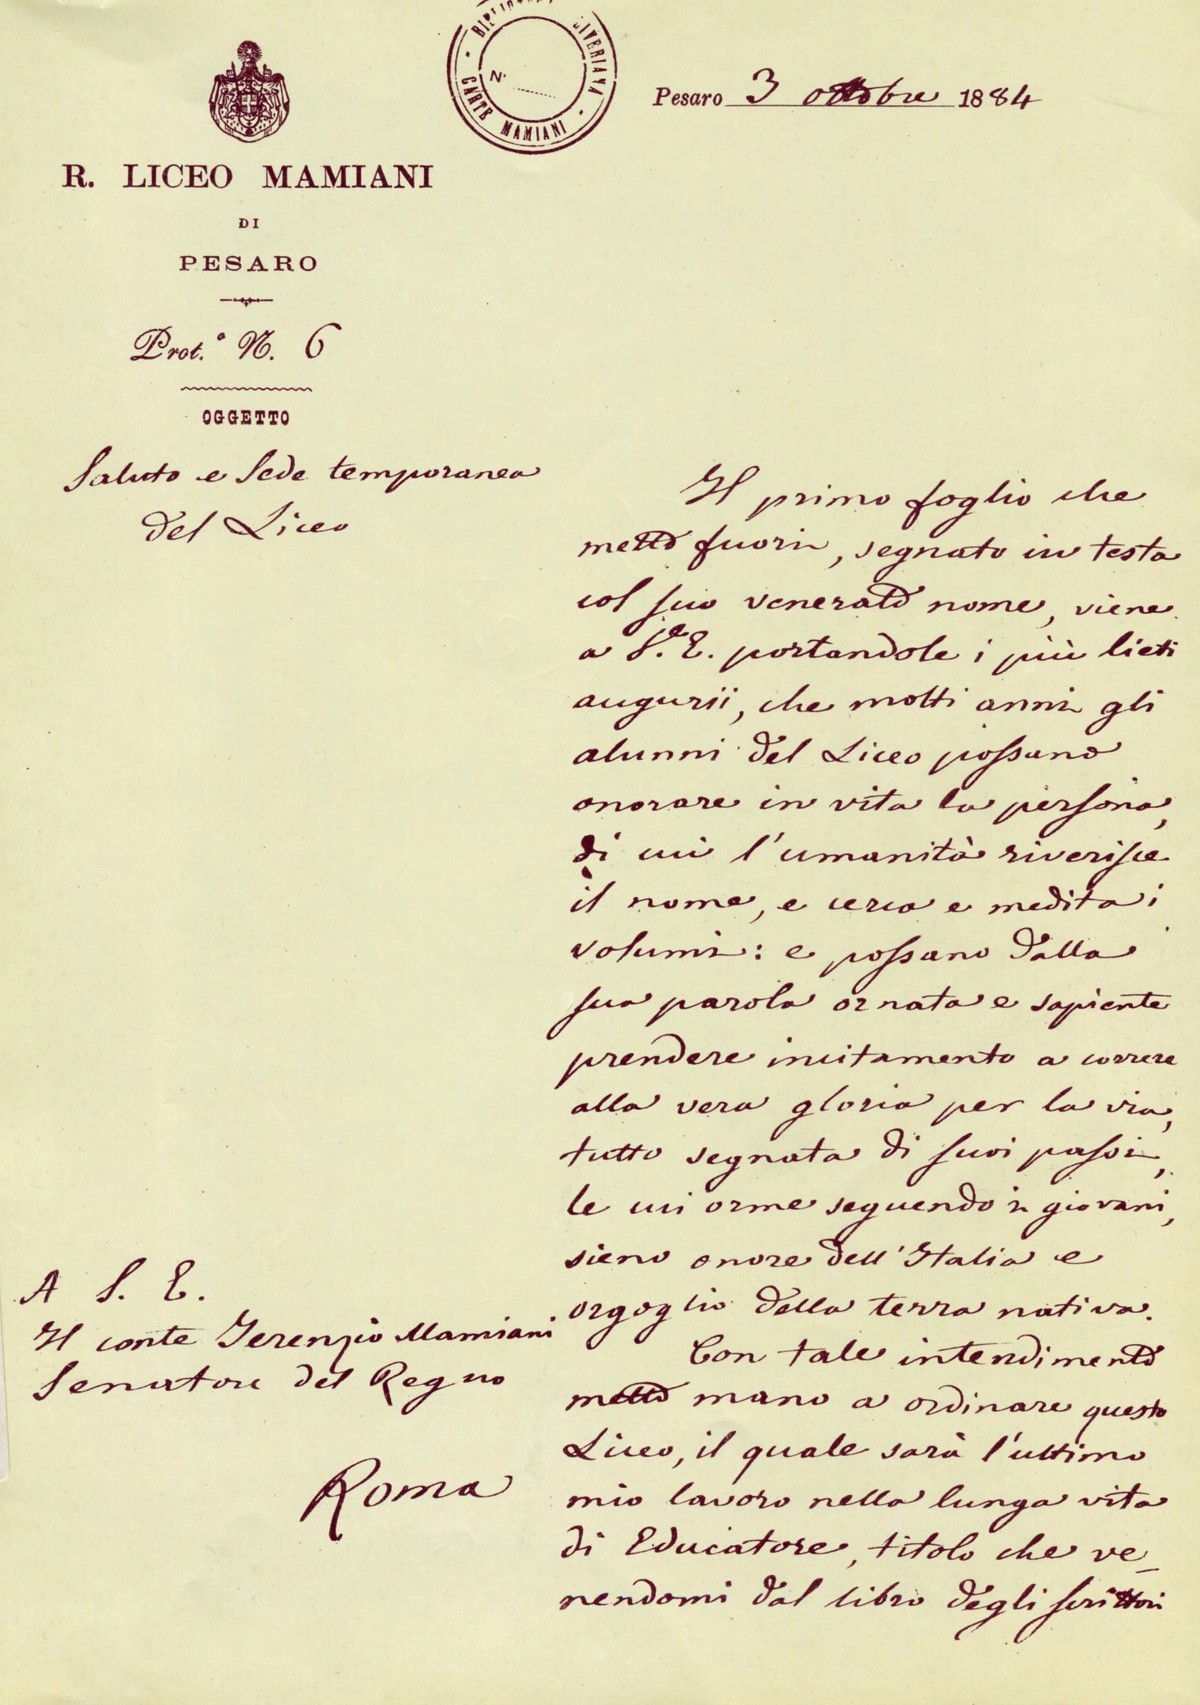 BIBLIOTECA OLIVERIANA
CARTE MAMIANI
N.
Pesaro 3 ottobre 1884
R. LICEO MAMIANI
DI
PESARO
Prot.° N. 6
OGGETTO
Saluto e Sede temporanea
del Liceo
Il primo foglio che
metto fuori, segnato in testa
col suo venerato nome, viene
a S.a E. portandole i più lieti
augurii, che molti anni gli
alunni del Liceo possano
onorare in vita la persona,
di cui l'umanità riverisce
il nome, e cerca e medita i
volumi: e possano dalla
sua parola ornata e sapiente
prendere incitamento a correre
alla vera gloria per la via,
tutto segnata di suoi passi,
le cui orme seguendo i giovani,
sieno onore dell'Italia e
orgoglio della terra nativa.
Con tale intendimento
metto mano a ordinare questo
Liceo, il quale sarà l'ultimo
mio lavoro nella lunga vita
di Educatore, titolo che ve_
nendomi dal libro degli scrittori
A S. E.
Il conte Terenzio Mamiani
Senatore del Regno
Roma